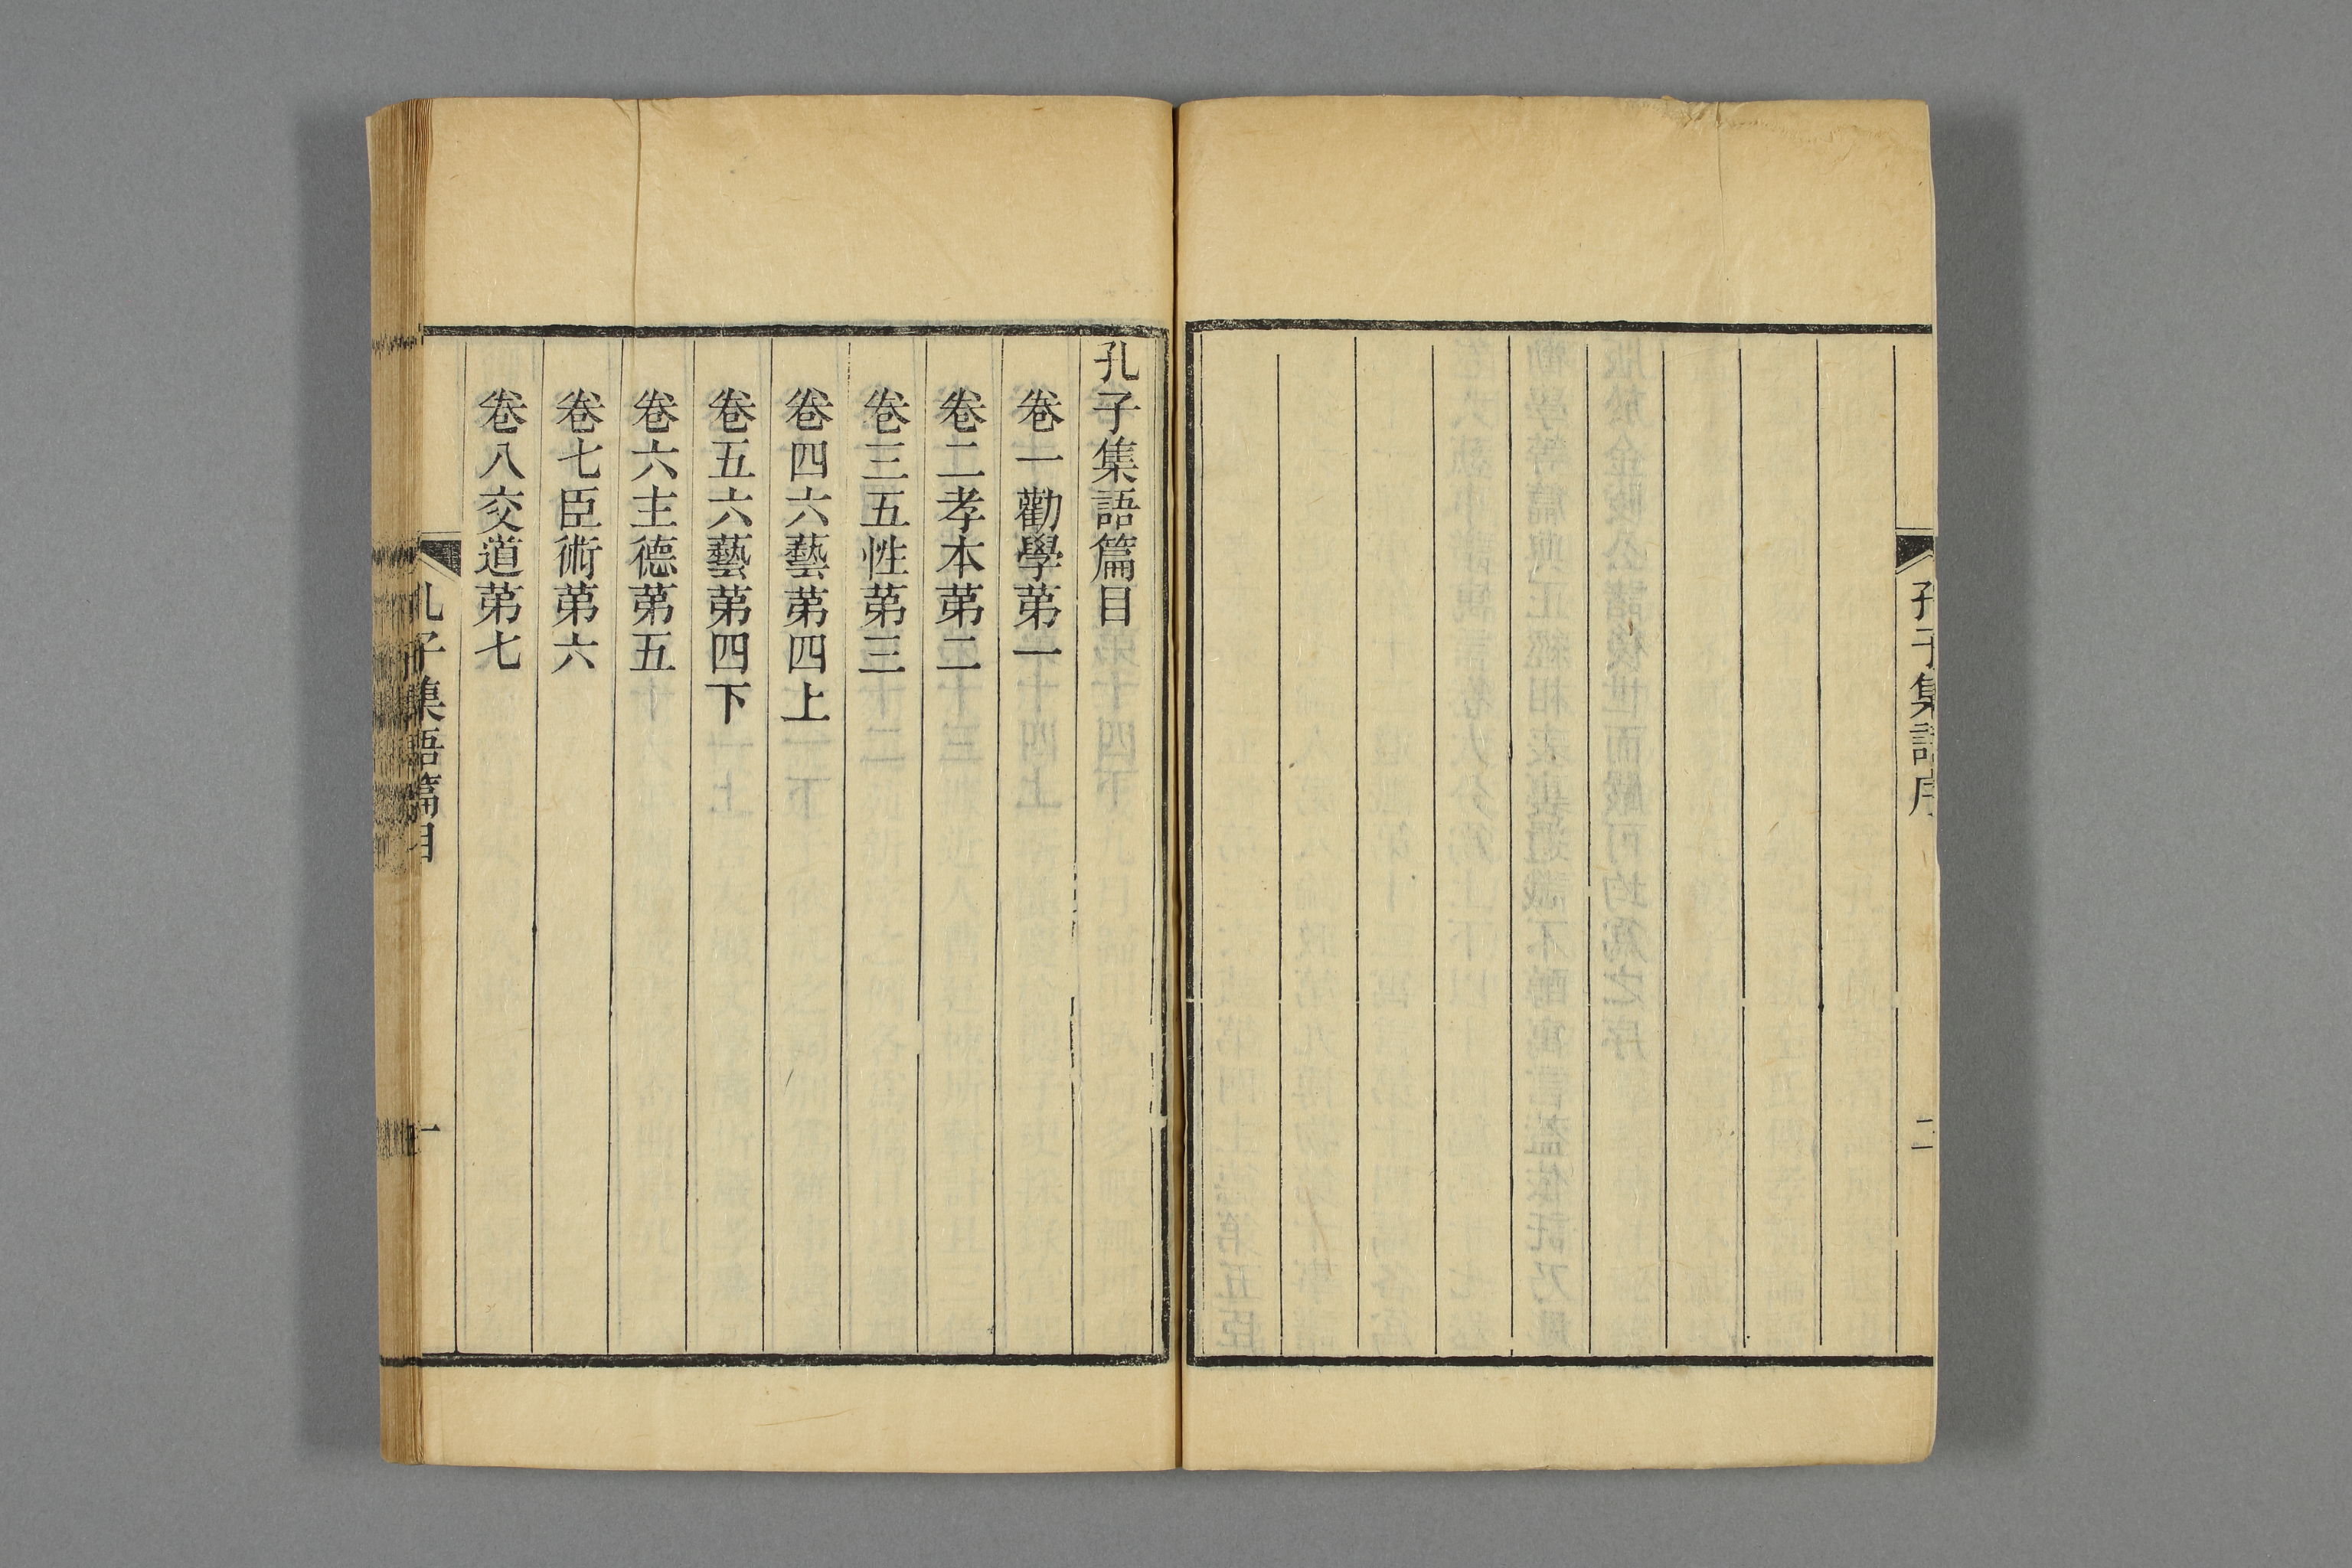 孔子集語序
二
孔子集語篇目
卷一勸學第一
卷二孝本第二
卷三五性第三
卷四六藝第四上
卷五六藝第四下
卷六主德第五
卷七臣術第六
卷八交道第七
孔子集語篇目
一